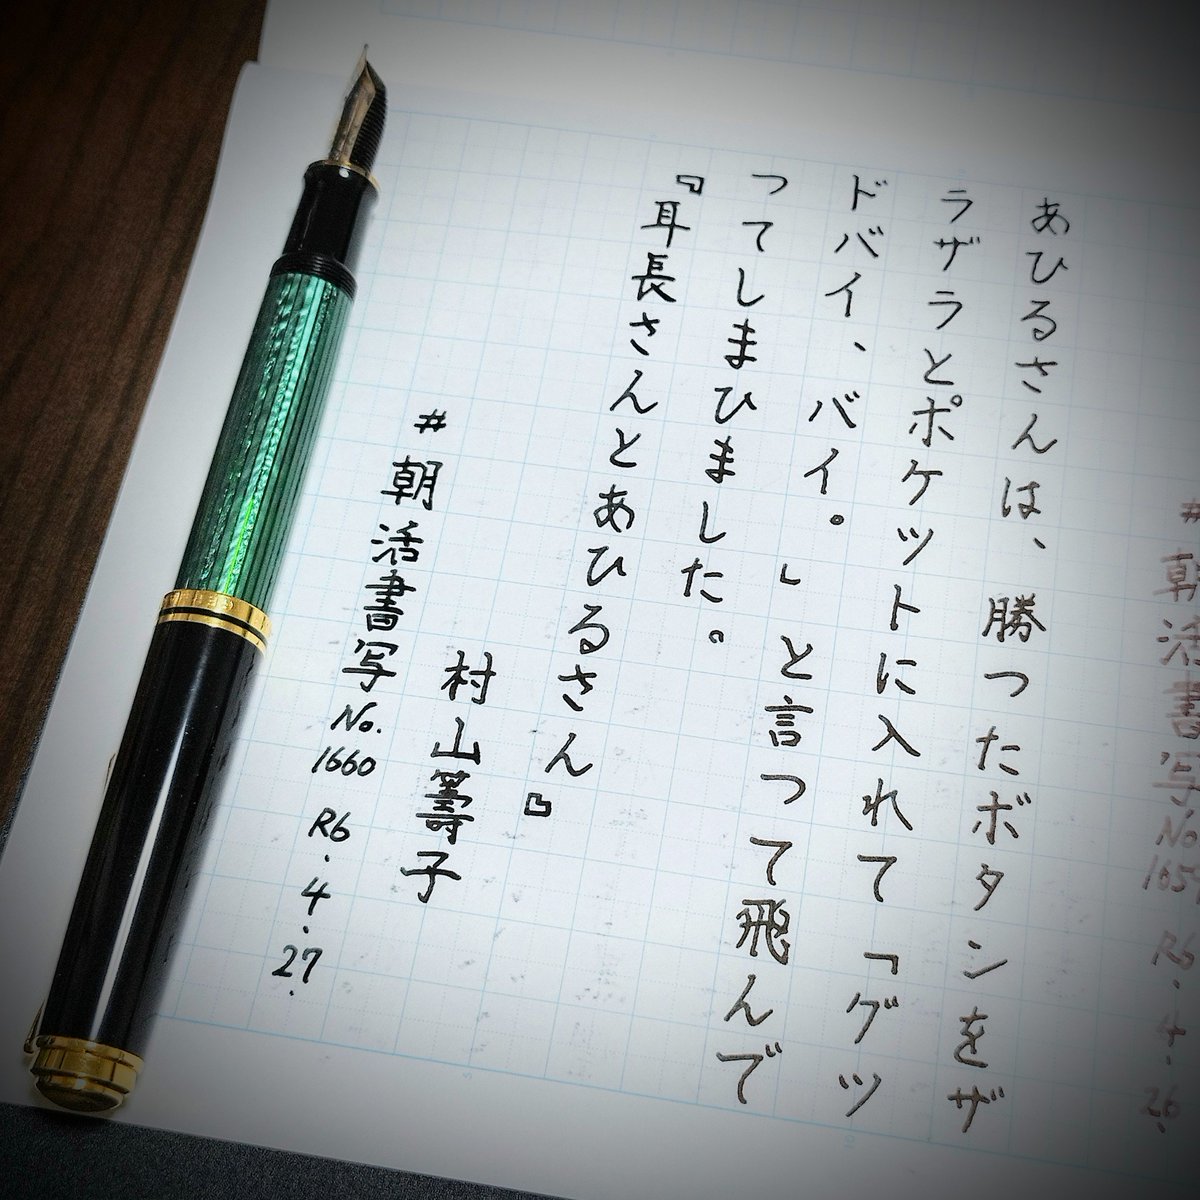 あひるさんは、勝つたボタンをザ
ラザラとポケットに入れて「グッ
ドバイ、バイ。」と言つて飛んで
つてしまひました。
『耳長さんとあひるさん』
村山籌子
#朝活書写No.1660 R6.4.27.
#朝活書写No.1659 R6.4.26.